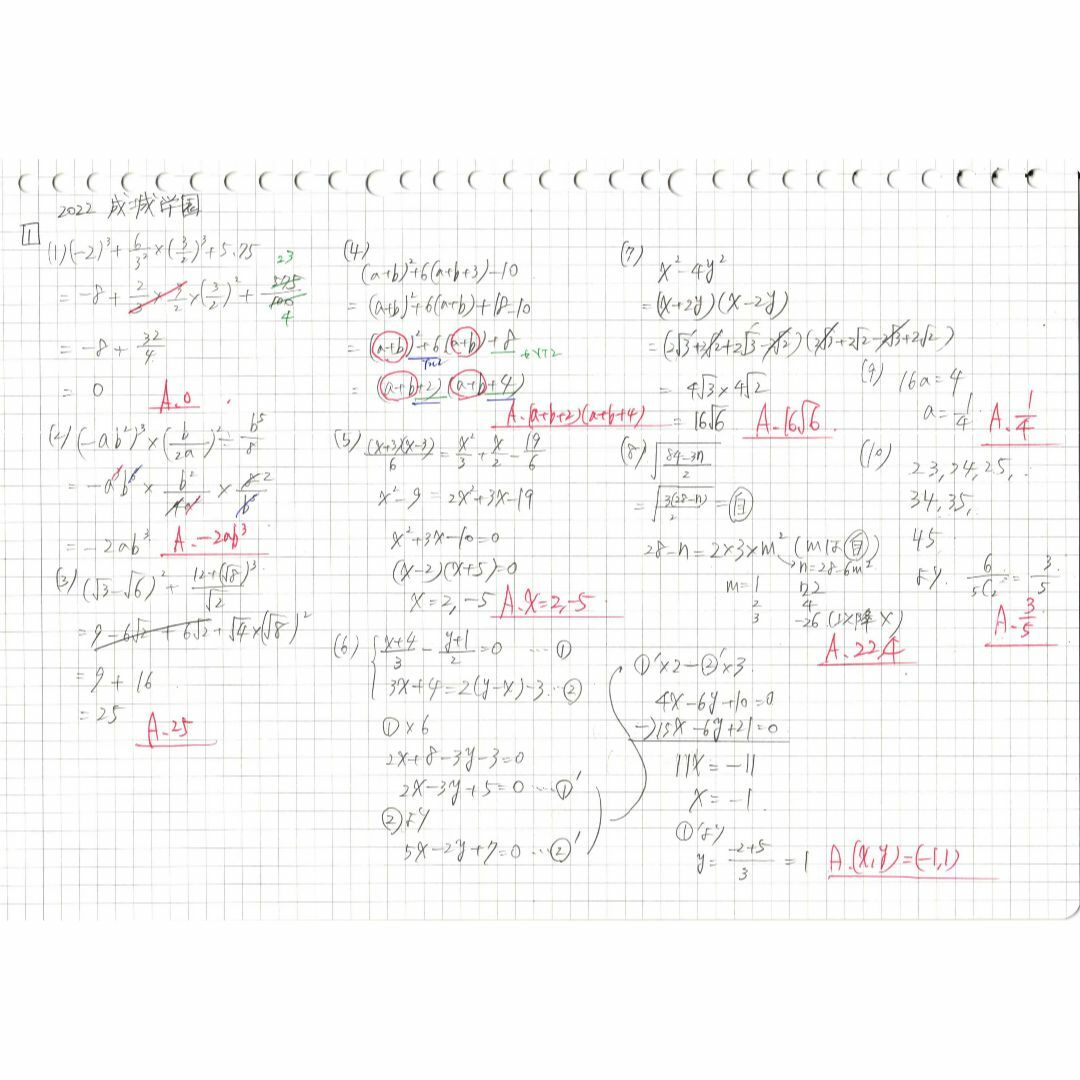 2022 成城学園
1
(1) (-2)³ + 6/3² × (3/2)³ + 5.75
= -8 + 2/3 × 3/2 × (3/2)² + 575/100 23 4
= -8 + 32/4
= 0
A. 0
(2) (-ab²)³ × (b/2a)² ÷ b⁵/8
= -a³b⁶ × b²/4a² × 8 2/b⁵
= -2ab³ A. -2ab³
(3) (√3-√6)² + 12+(√8)³/√2
= 9 - 6√2 + 6√2 + √4×(√8)²
= 9 + 16
= 25
A. 25
(4)
(a+b)²+6(a+b+3)-10
= (a+b)²+6(a+b)+18-10
= (a+b)²+6(a+b)+8
= (a+b+2)(a+b+4)
A. (a+b+2)(a+b+4)
(5) (x+3)(x-3)/6 = x²/3 + x/2 - 19/6
x²-9 = 2x²+3x-19
x²+3x-10=0
(x-2)(x+5)=0
x=2,-5 A. x=2,-5
(6) { x+4/3 - y+1/2 = 0 … ①
3x+4=2(y-x)-3 … ②
①×6
2x+8-3y-3=0
2x-3y+5=0 … ①'
②より
5x-2y+7=0 … ②'
①'×2-②'×3
4x-6y+10=0
-)15x-6y+21=0
11x=-11
x=-1
①'より
y= -2+5/3 = 1 A. (x,y)=(-1,1)
(7)
x²-4y²
= (x+2y)(x-2y)
= (2√3+2√2+2√3-2√2)(2√3+2√2-2√3+2√2)
= 4√3×4√2
= 16√6 A. 16√6
(8) √84-3n/2
= √3(28-n)/2 = 自
28-n=2×3×m² (mは自)
n=28-6m²
m=1 22
2 4
3 -26 (以降×)
A. 22,4
(9) 16a=4
a=1/4 A. 1/4
(10) 23,24,25,
34,35,
45
より 6/₅C₂ = 3/5
A. 3/5